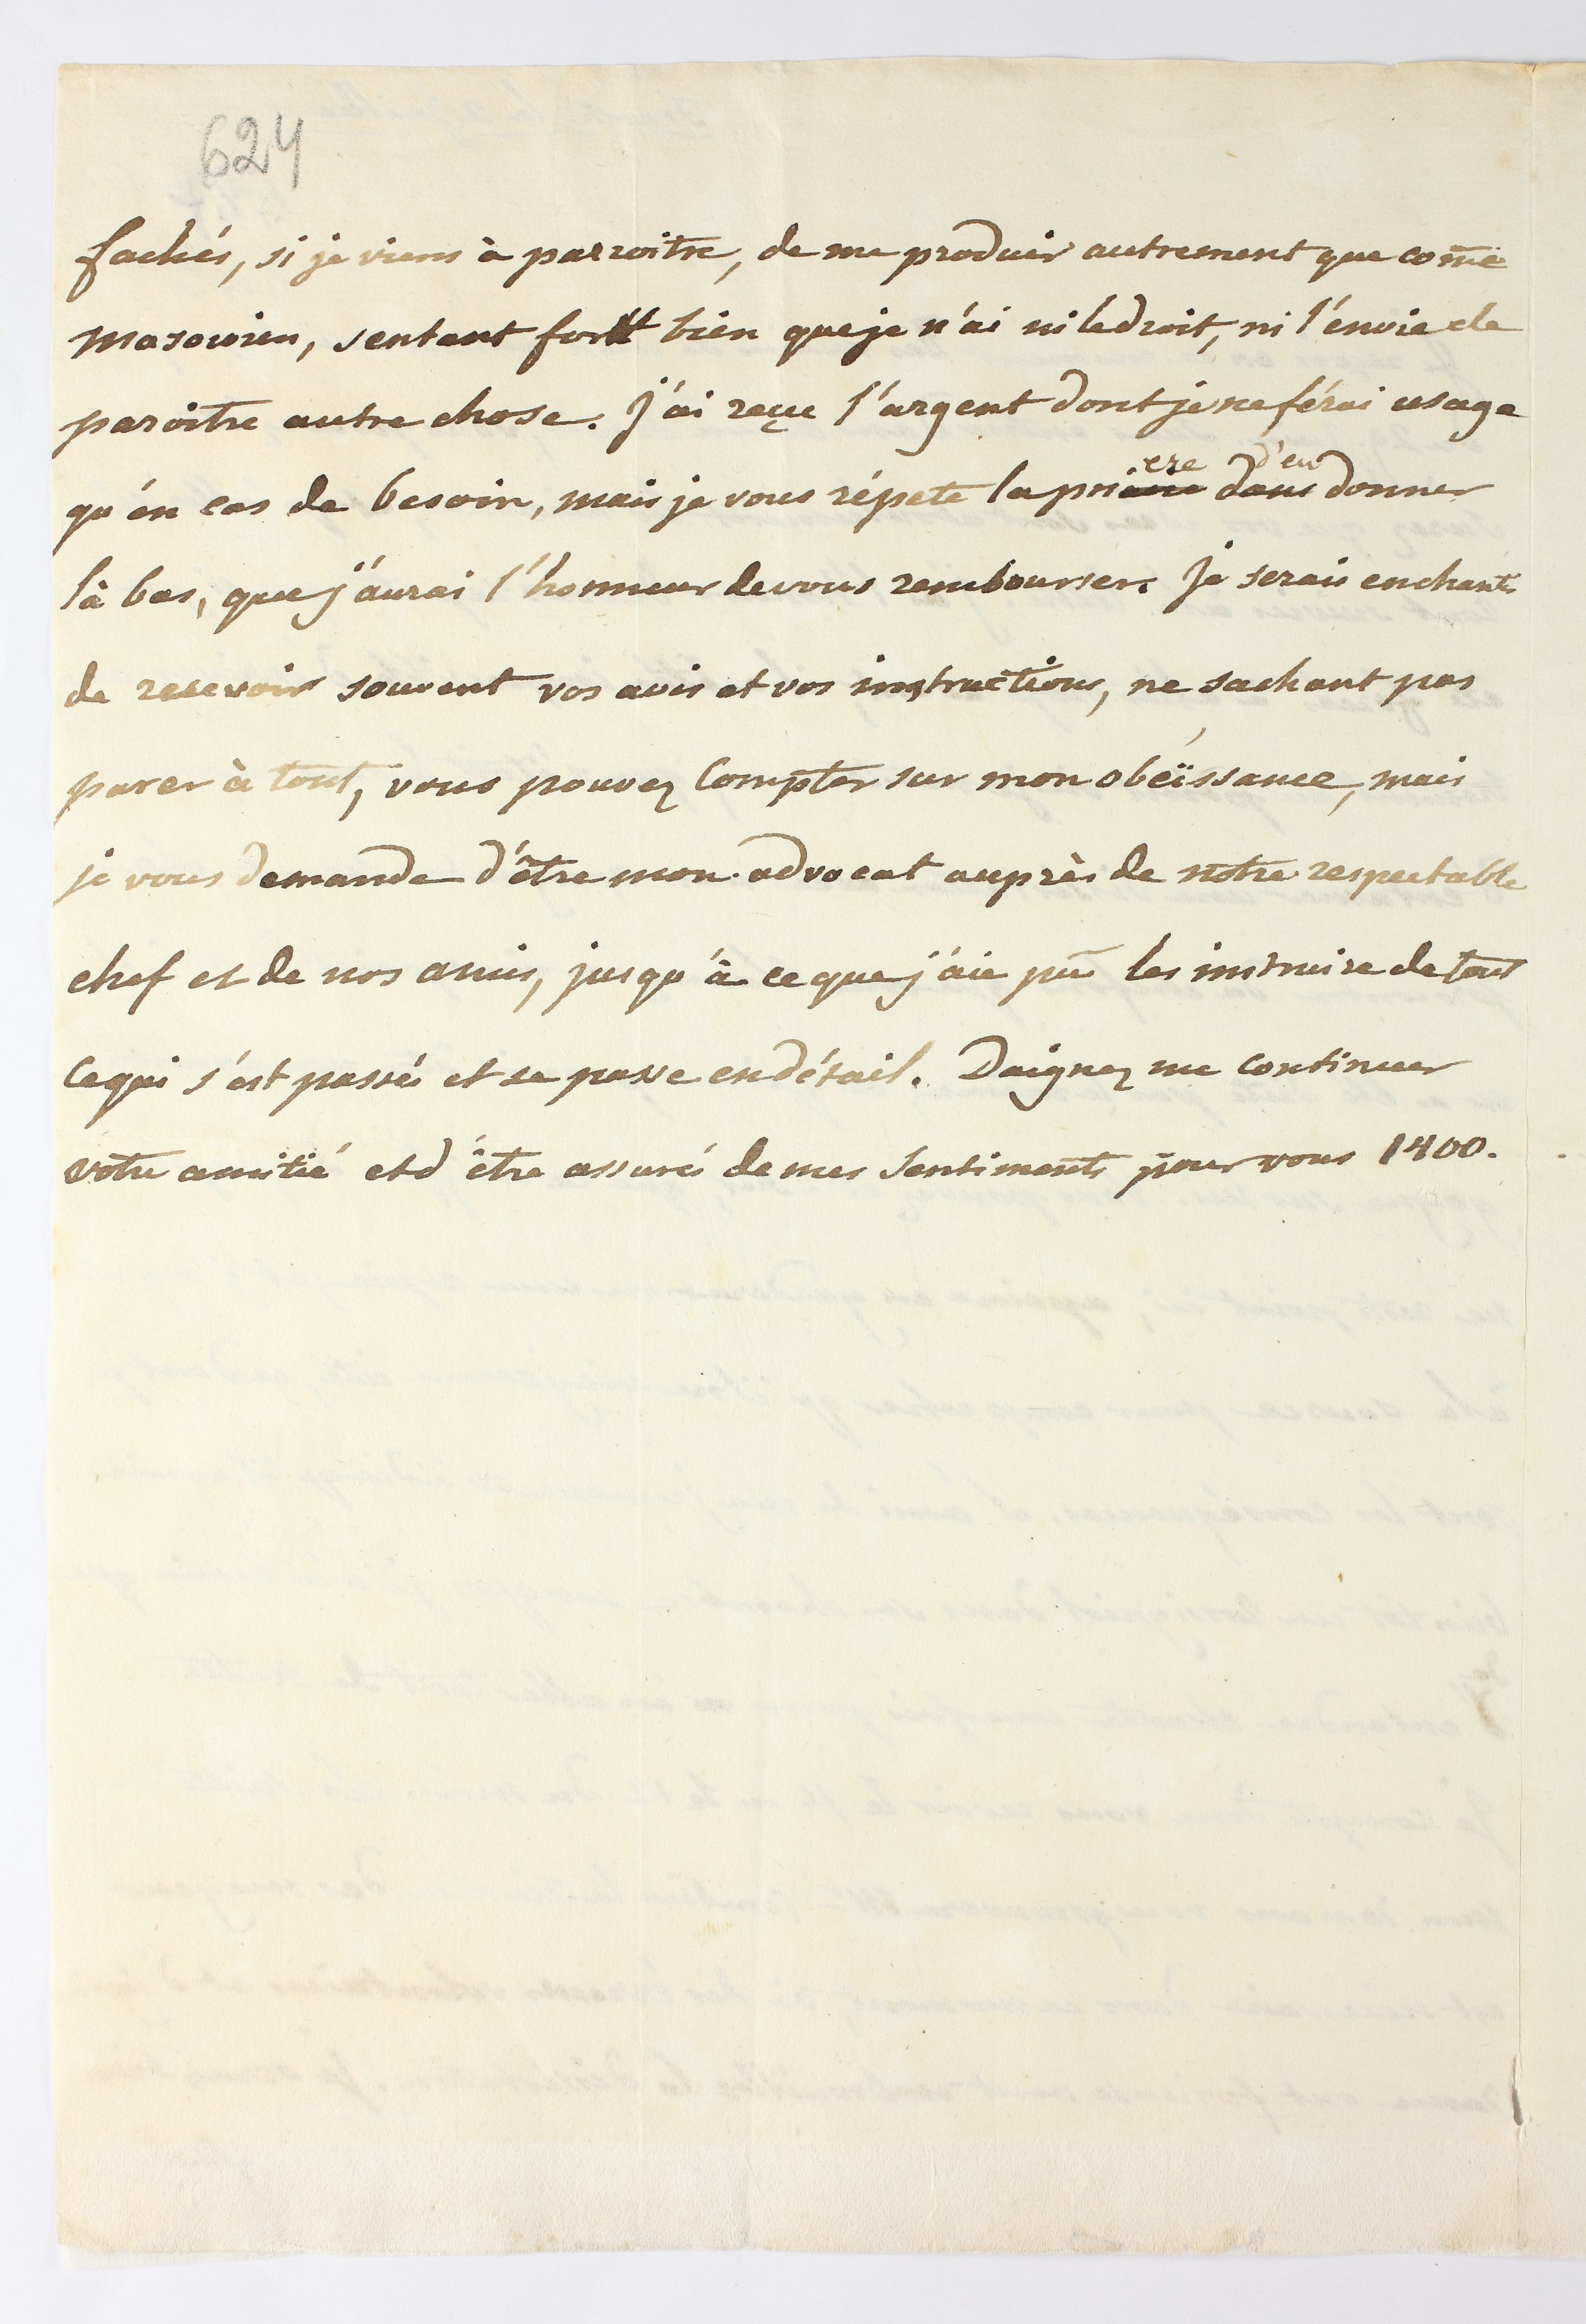 624
fachés, si je viens à parroitre, de me produir autrement que com̄e
masowien, sentant fort bien que je n'ai ni le droit, ni l'envie de
paroitre autre chose. J'ai reçue l'argent dont je ne férai usage
qu'én cas de besoin, mais je vous répete la priere d'en donner
là bas, que j'aurai l'honneur de vous rembourser. Je serais enchanté
de recevoir souvent vos avis et vos instructions, ne sachant pas
parer à tout, vous pouvez compter sur mon obéïssance, mais
je vous demande d'être mon advocat auprès de notre respectable
chef et de nos amis, jusqu'à ce que j'aie pû les instruire de tout
ce qui s'est passés et se passe en détail. Daignez me continuer
votre amitié et d'être assurés de mes sentiments pour vous 1400.